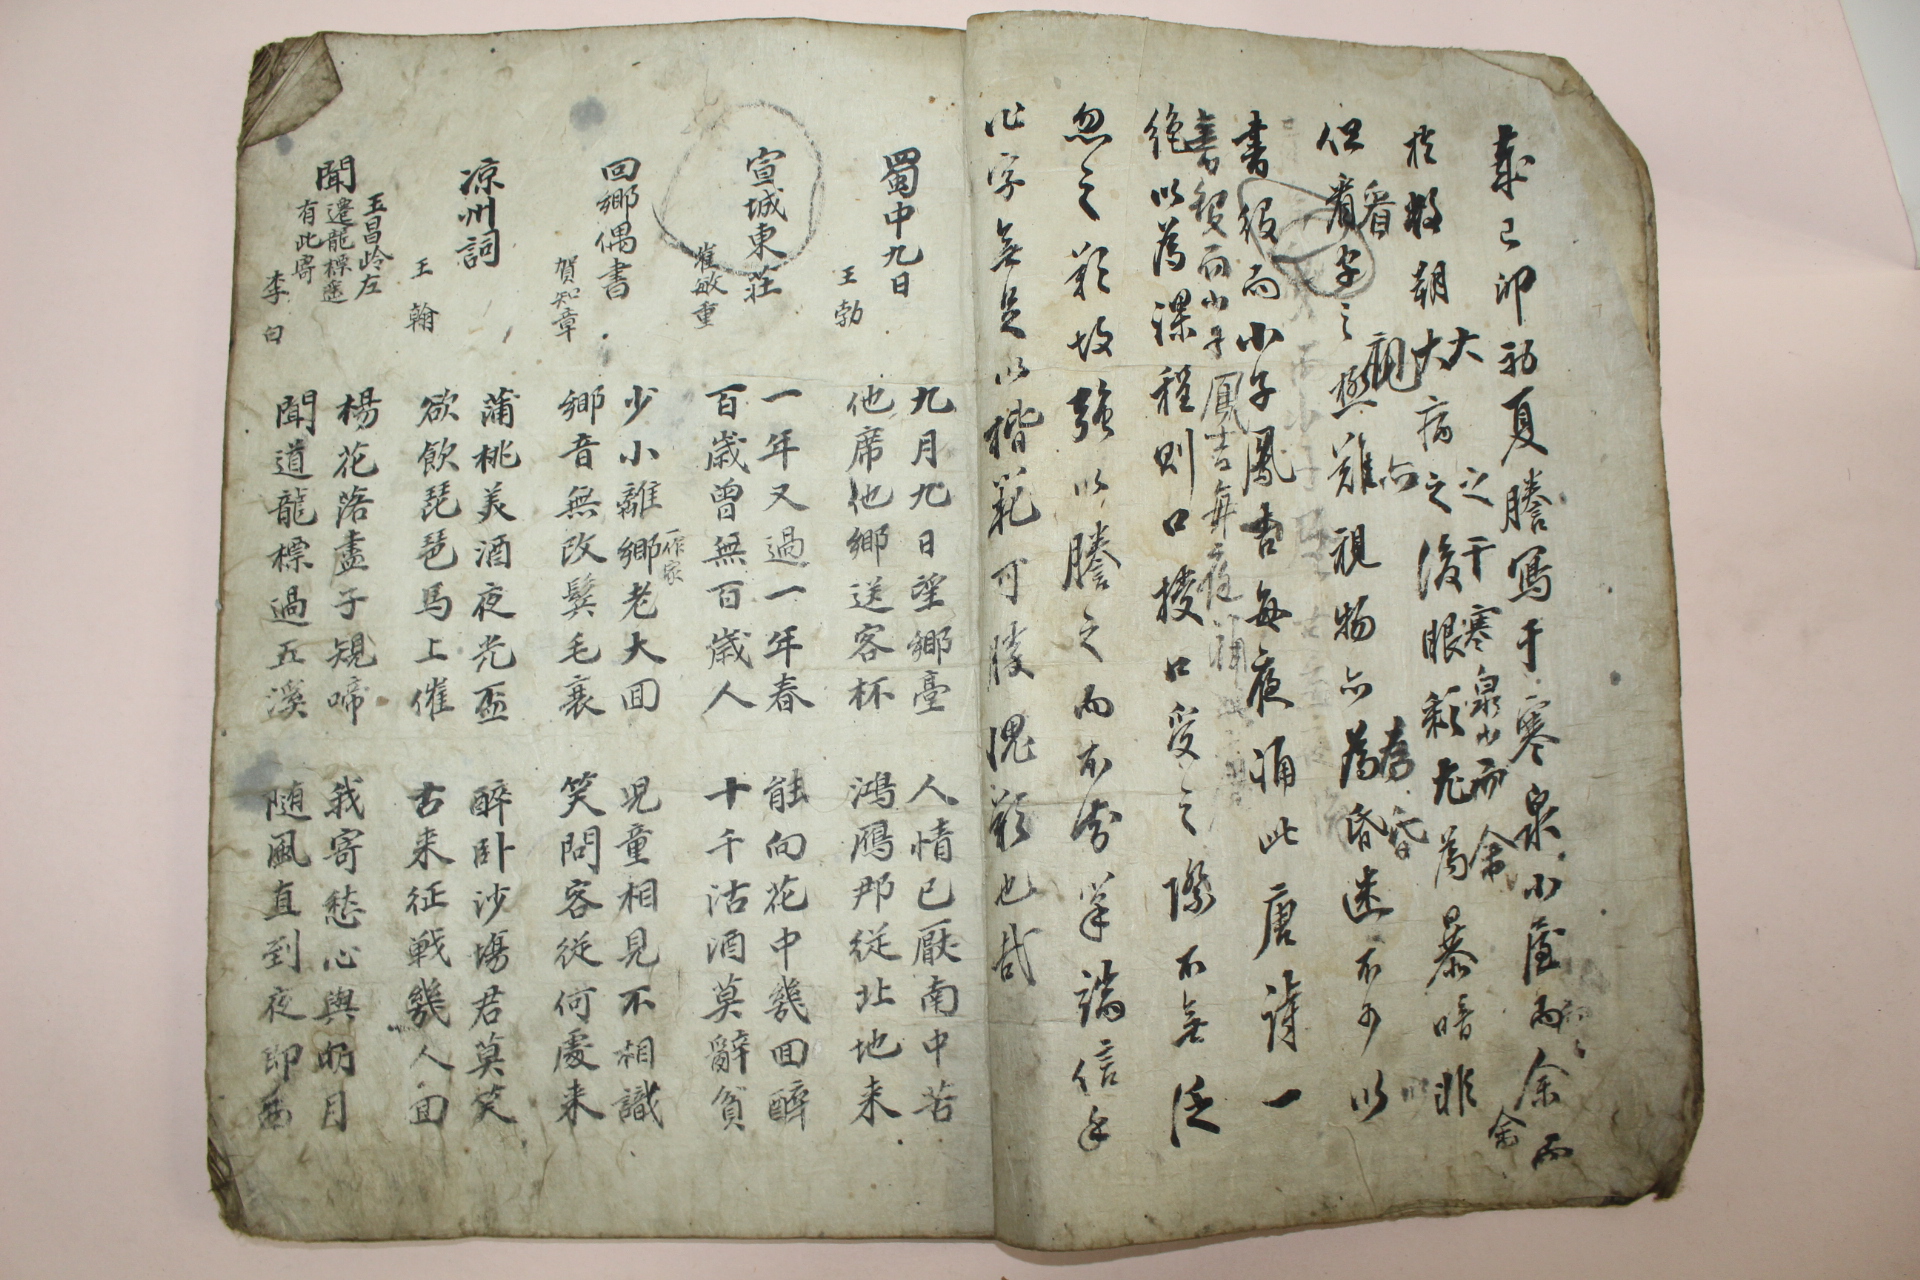 歲己卯初夏謄寫于寒泉小屋而余
大病之後眼彩尤爲暴暗非
但看字之極難視物亦爲昏迷不可以
書役而小子鳳吉每夜誦此唐詩一
絶以爲課程則口授口受之際不無泛
忽之歎故强以謄之而亦當筆端信手
作字無足以楷範可勝愧歎也哉
蜀中九日
王勃
九月九日望鄉臺 人情已厭南中苦
他席他鄉送客杯 鴻鴈那從北地来
宣城東莊
崔敏重
一年又過一年春 能向花中幾回醉
百歲曾無百歲人 十千沽酒莫辭貧
回鄉偶書
賀知章
少小離鄉老大回 児童相見不相識
一作家
鄉音無改鬂毛衰 笑問客從何處来
凉州詞
王翰
蒲桃美酒夜光盃 醉卧沙場君莫笑
欲飮琵琶馬上催 古来征戰幾人回
聞王昌岺左
遷龍標遙
有此寄
李白
楊花落盡子規啼 我寄愁心與明月
聞道龍標過五溪 随風直到夜郎西